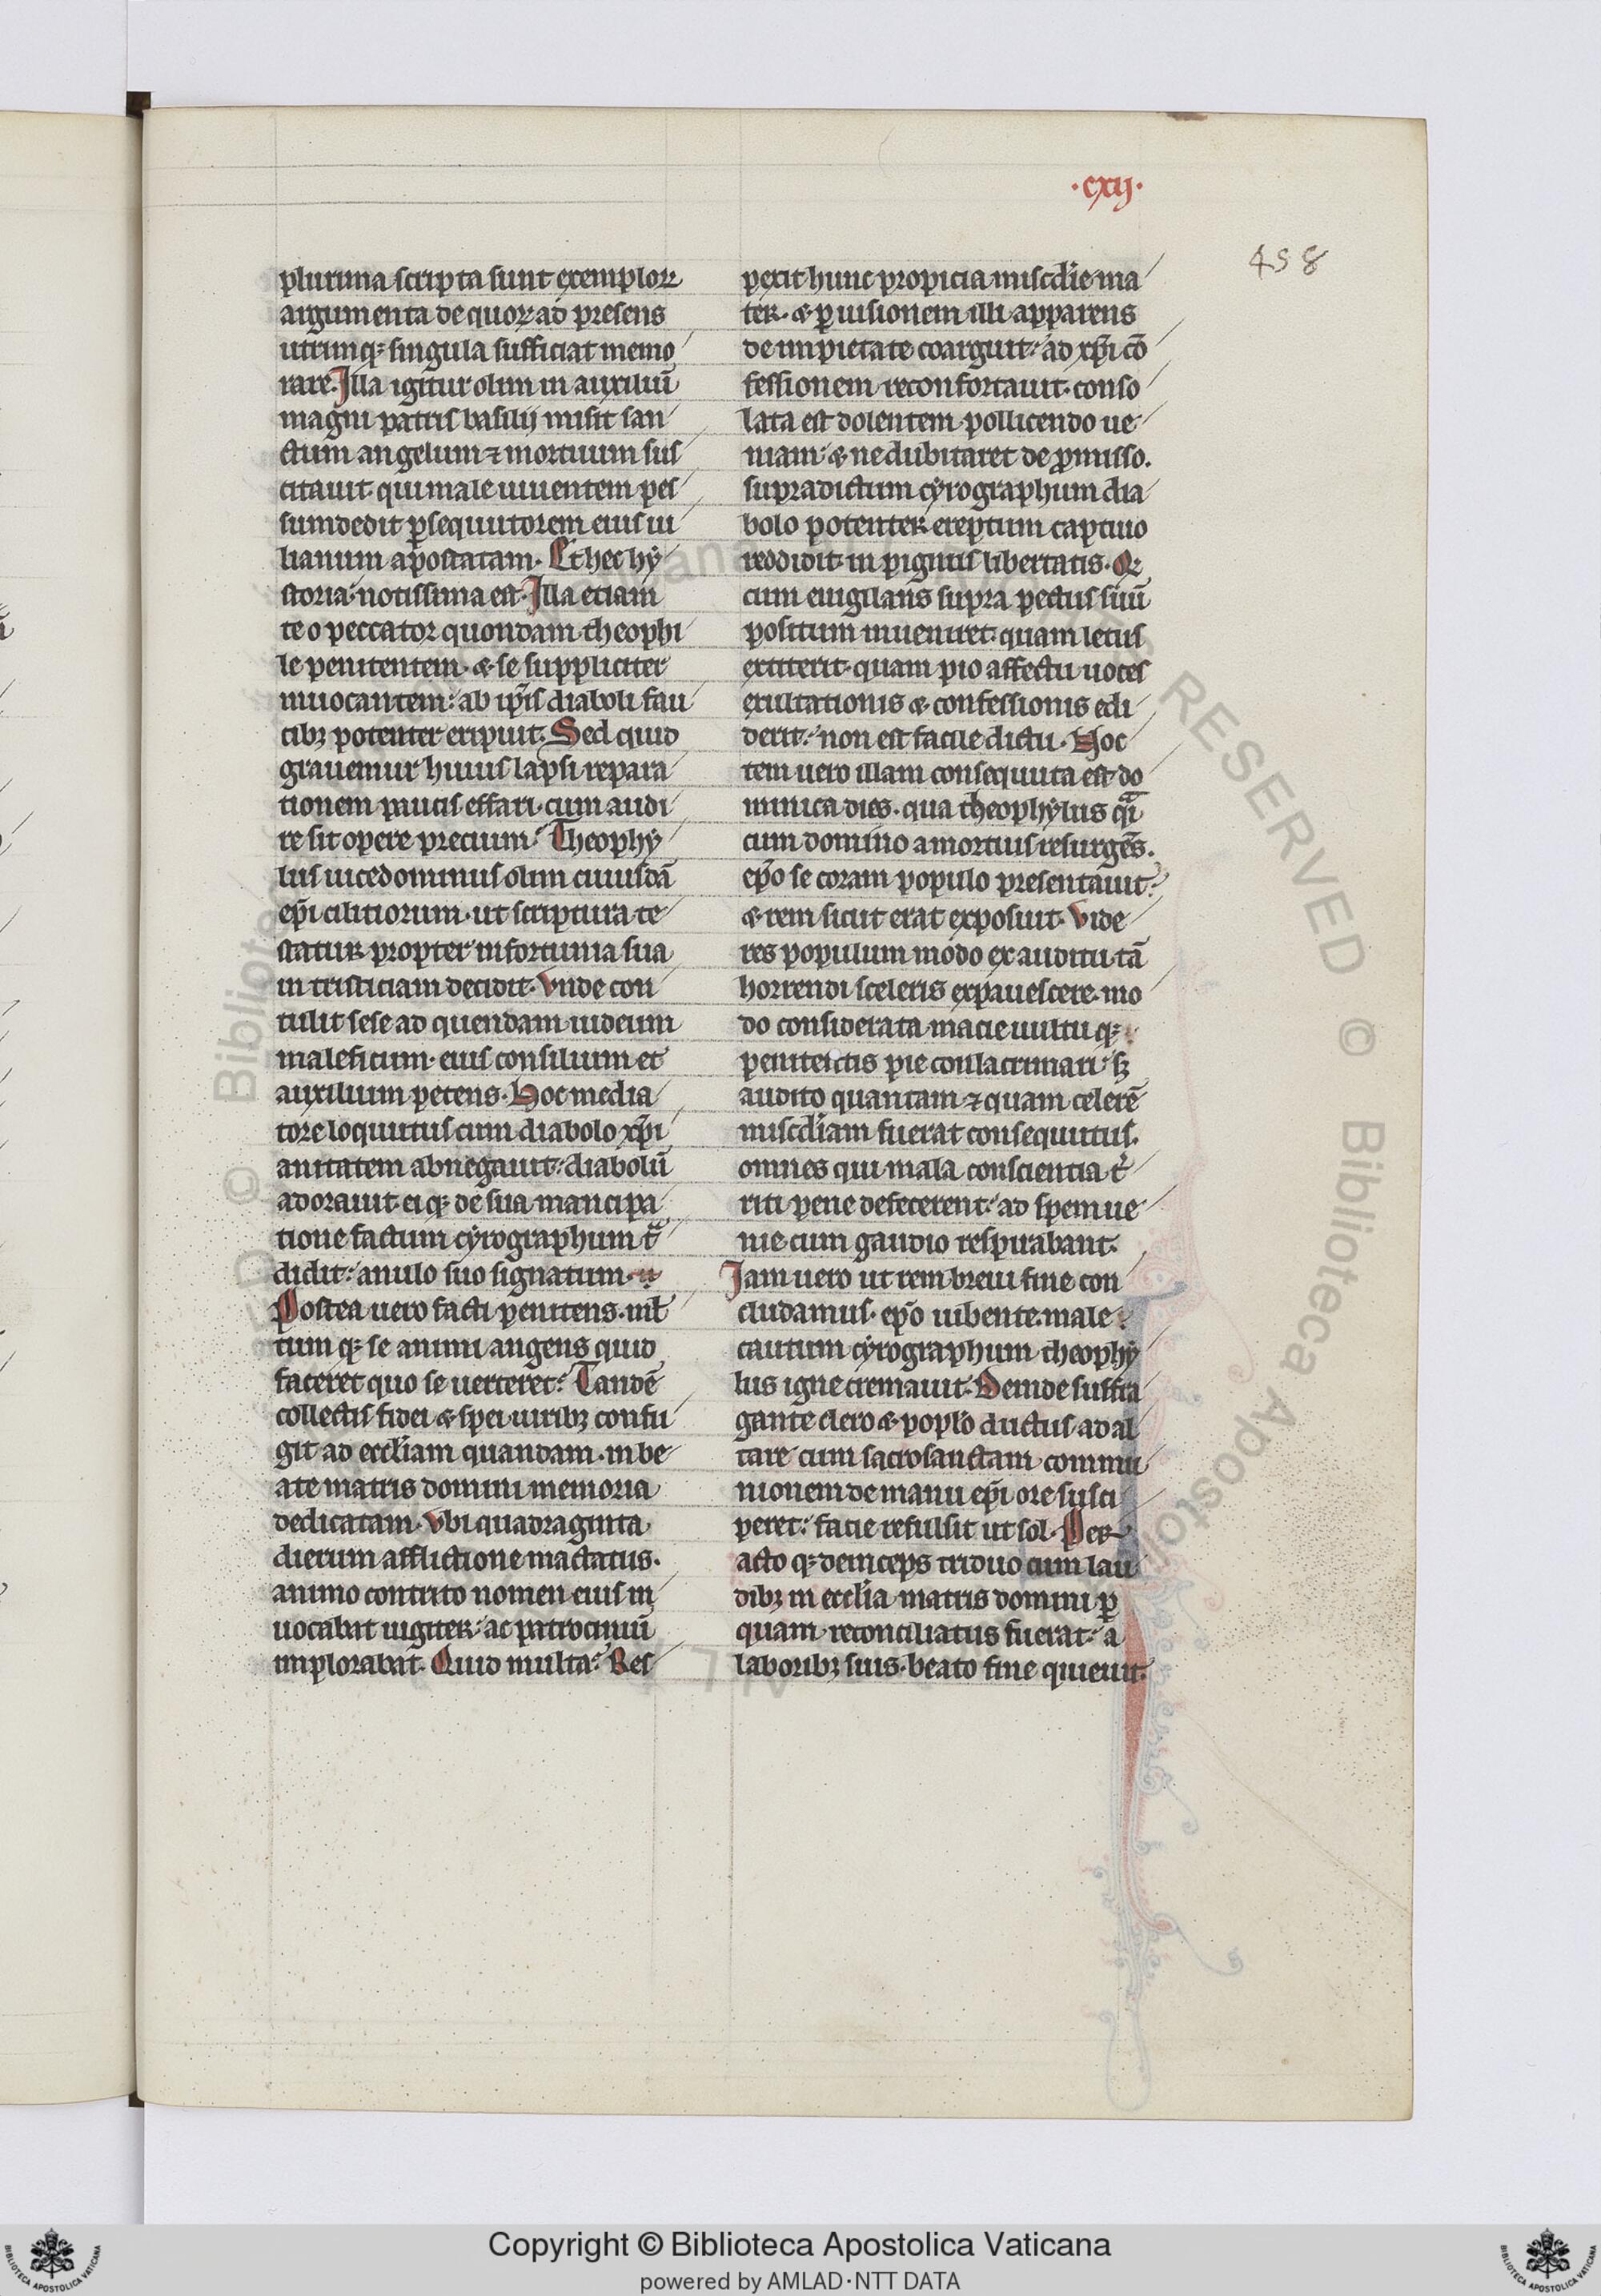 ·cxij·
458
plurima scripta sunt exemploꝝ
argumenta de quoꝝ ad presens
utrimqꝫ singula sufficiat memo
rare. Illa igitur olim in auxiliū
magni patris basilij misit san
ctum angelum ⁊ mortuum sus
citauit qui male uiuentem pes
sumdedit ꝑsequutorem eius iu
lianum apostatam. Et hec hy
storia notissima est. Illa etiam
te o peccator quondam theophi
le penitentem. & se suppliciter
inuocantem: ab ip̄is diaboli fau
cibꝫ potenter eripuit. Sed quid
grauemur huius lapsi repara
tionem paucis effari. cum audi
re sit opere precium? Theophy
lus uicedominus olim cuiusdā
ep̄i cilitiorum. ut scriptura te
statur propter infortunia sua
in tristiciam decidit. Vnde con
tulit sese ad quendam iudeum
maleficum. eius consilium et
auxilium petens. Hoc media
tore loquutus cum diabolo xp̄i
anitatem abnegauit: diabolū
adorauit eiqꝫ de sua mancipa
tione factum cyrographum tᵃ
didit: anulo suo signatum.
Postea uero facti penitens. ml̄
tum qꝫ se animi angens quid
faceret quo se uerteret? Tandē
collectis fidei & spei uiribꝫ confu
git ad eccl̄iam quandam. in be
ate matris domini memoria
dedicatam. Vbi quadraginta
dierum afflictione mactatus.
animo contrito nomen eius in
uocabat iugiter: ac patrociniū
implorabat. Quid multa? Res
pexit hunc propicia misc̄die ma
ter. & ꝑ uisionem illi apparens
de impietate coarguit: ad xp̄i cō
fessionem reconfortauit. conso
lata est dolentem pollicendo ue
niam: & ne dubitaret de ꝓmisso.
supradictum cyrographum dia
bolo potenter ereptum captiuo
reddidit in pignus libertatis. Qꝛ
cum euigilans supra pectus suū
positum inueniret: quam letus
extiterit. quam pio affectu uoces
exultationis & confessionis edi
derit: non est facile dictu. Noc
tem uero illam consequuta est do
minica dies. qua theophylus qᵃi
cum domino a mortuis resurgēs.
ep̄o se coram populo presentauit:
& rem sicut erat exposuit. Vide
res populum modo ex auditu tā
horrendi sceleris expauescere. mo
do considerata macie uultu qꝫ
penitentis pie conlacrimari: sꝫ
audito quantam ⁊ quam celerē
misc̄diam fuerat consequutus.
omnes qui mala conscientia tⁱ
riti pene defecerent: ad spem ue
nie cum gaudio respirabant.
Iam uero ut rem breui fine con
cludamus. ep̄o iubente. male
cautum cyrographum theophy
lus igne cremauit. Deinde suffra
gante clero & popl̄o ductus ad al
tare cum sacrosanctam commu
nionem de manu ep̄i ore susci
peret: facie refulsit ut sol. Per
acto qꝫ deinceps triduo cum lau
dibꝫ in eccl̄ia matris domini ꝑ
quam reconciliatus fuerat: a
laboribꝫ suis. beato fine quieuit.
Copyright © Biblioteca Apostolica Vaticana
powered by AMLAD·NTT DATA